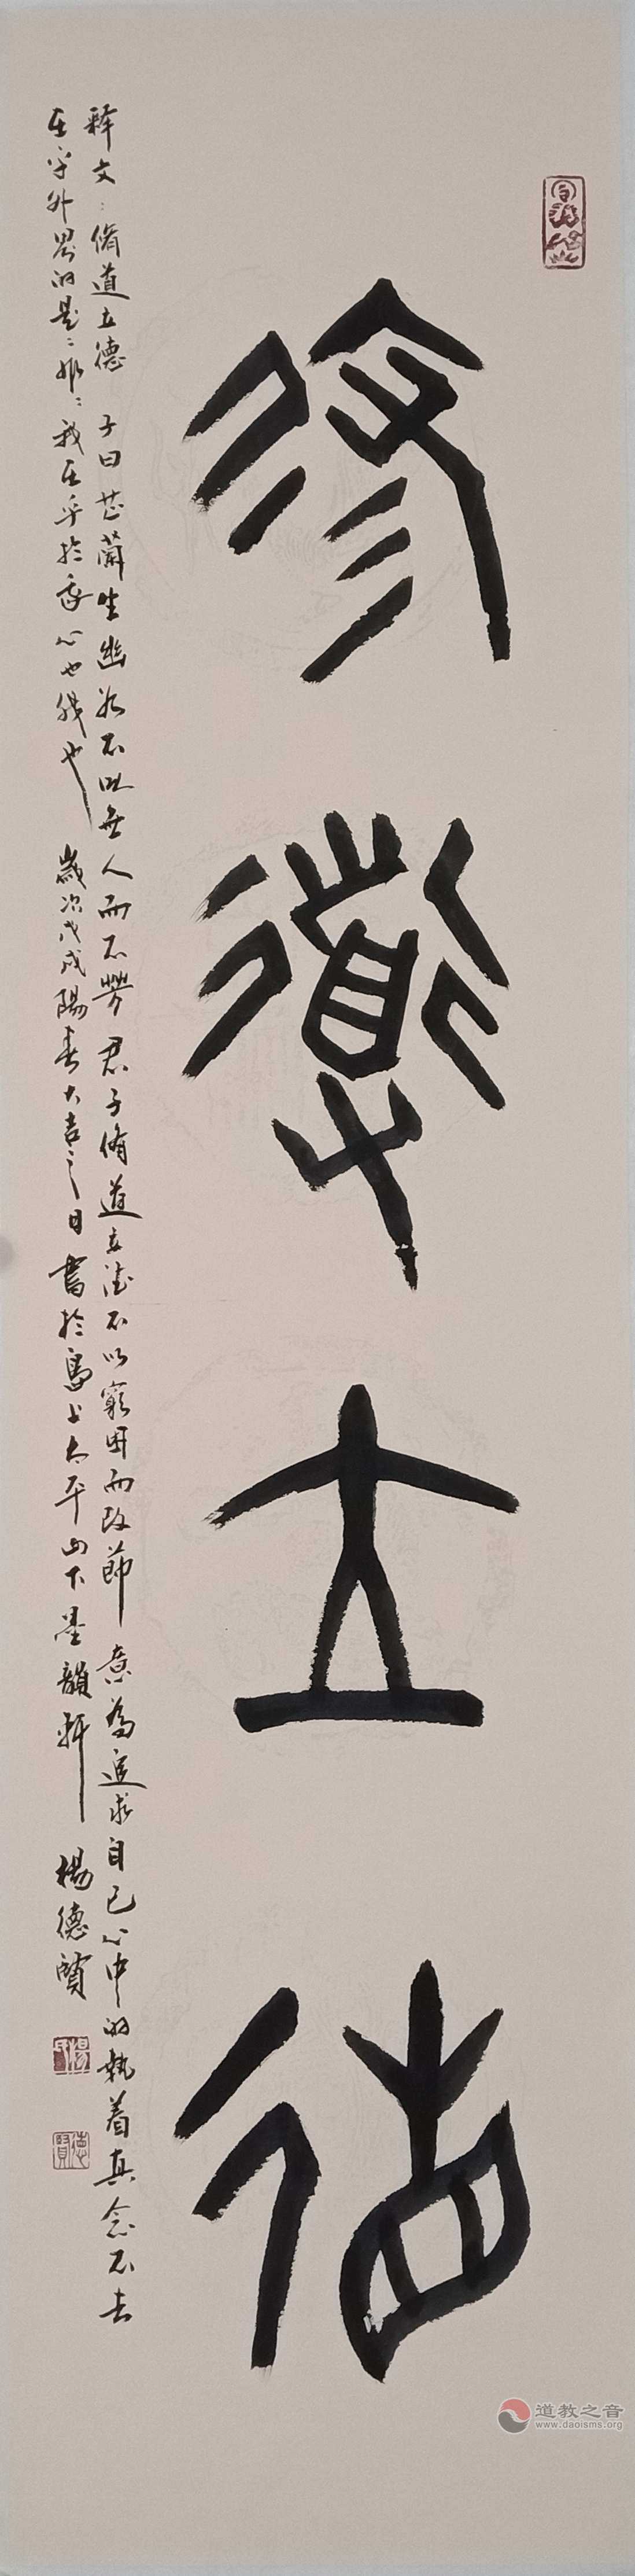 修道立德
释文：脩道立德 子曰芷蘭生幽谷不以無人而不芳君子脩道立德不以窮困而改節 意為追求自已心中的執着真念不去
在乎外界的是是非非我在乎於我心也哉也 歲次戊戌陽春大吉之日書於島上太平山下墨韻軒 楊德賢
德賢
道教之音
www.daoisms.org